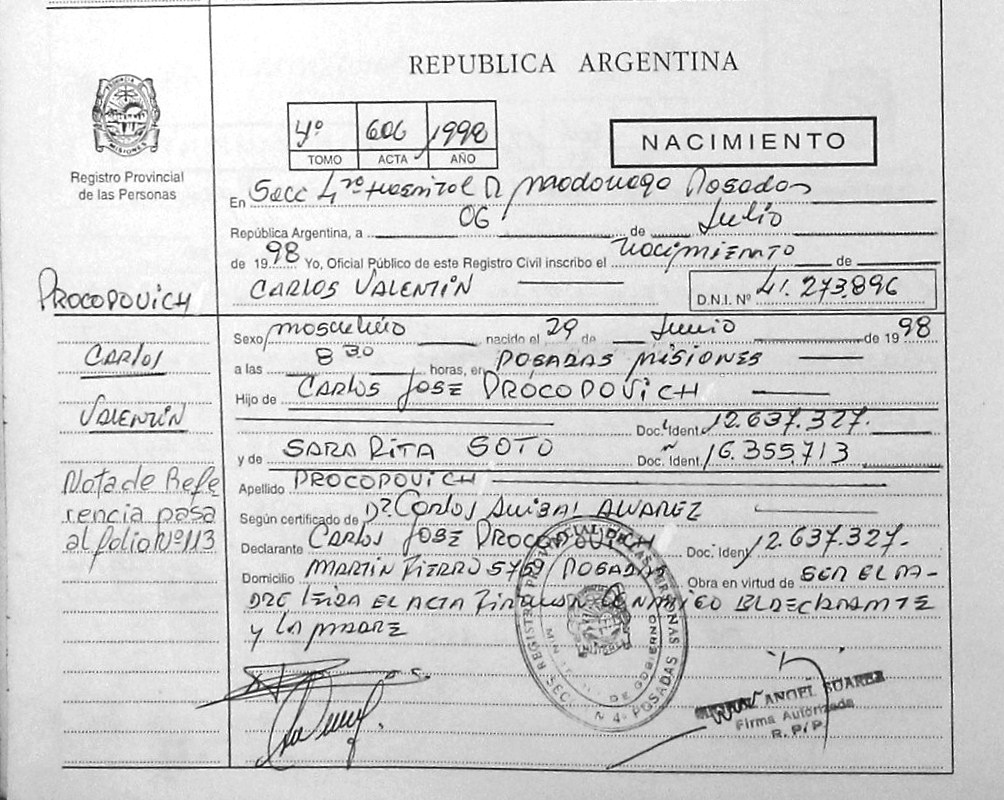 REPUBLICA ARGENTINA
PROVINCIA
MISIONES
Registro Provincial
de las Personas
4º 606 1998
TOMO ACTA AÑO
NACIMIENTO
En Secc 4ta Hospital R Madariaga Posadas
República Argentina, a 06 de Julio
de 1998 Yo, Oficial Público de este Registro Civil inscribo el Nacimiento de
CARLOS VALENTIN D.N.I. Nº 41.273.896
PROCOPOVICH
CARLOS
VALENTIN
Nota de Refe
rencia pasa
al folio Nº 113
Sexo masculino nacido el 29 de Junio de 1998
a las 8 30 horas, en POSADAS MISIONES
Hijo de CARLOS JOSE PROCOPOVICH
Doc. Ident. 12.637.327.
y de SARA RITA SOTO Doc. Ident. 16.355.713
Apellido PROCOPOVICH
Según certificado de Dr. Carlos Anibal ALVAREZ
Declarante CARLOS JOSE PROCOPOVICH Doc. Ident. 12.637.327.
Domicilio MARTIN FIERRO 5769 POSADAS Obra en virtud de SER EL PA-
DRE leida EL ACTA FIRMAN CONMIGO EL DECLARANTE
y LA MADRE
REGISTRO PROVINCIAL DE LAS PERSONAS
DE GOBIERNO
SEC. N 4 - POSADAS
ANGEL SUAREZ
Firma Autorizada
R. P. P.